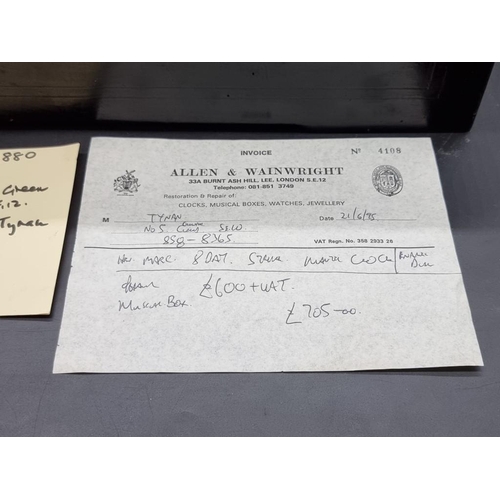 880
Green
.12.
Tynan
INVOICE
Nº 4108
ALLEN & WAINWRIGHT
33A BURNT ASH HILL, LEE, LONDON S.E.12
Telephone: 081-851 3749
Restoration & Repair of:
CLOCKS, MUSICAL BOXES, WATCHES, JEWELLERY
M TYNAN Date 21/6/95
No 5 SE10
858-8365 VAT Regn. No. 358 2933 28
MARC. 8 DAY. STRIKE MANTEL CLOCK
£600+VAT.
MUSICAL BOX
£705-00.